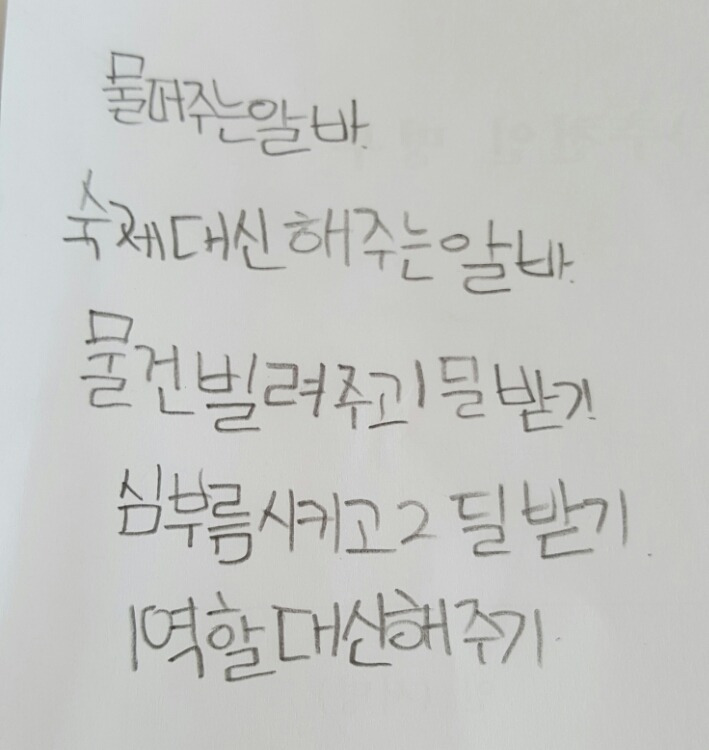 물떠주는알바.
숙제대신해주는알바.
물건빌려주고1딜받기.
심부름시키고2딜받기.
1역할대신해주기.